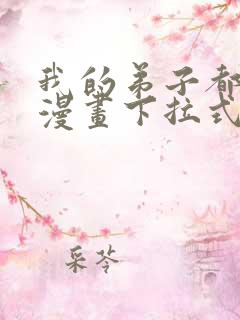 我的弟子都
漫畫下拉式
采苓